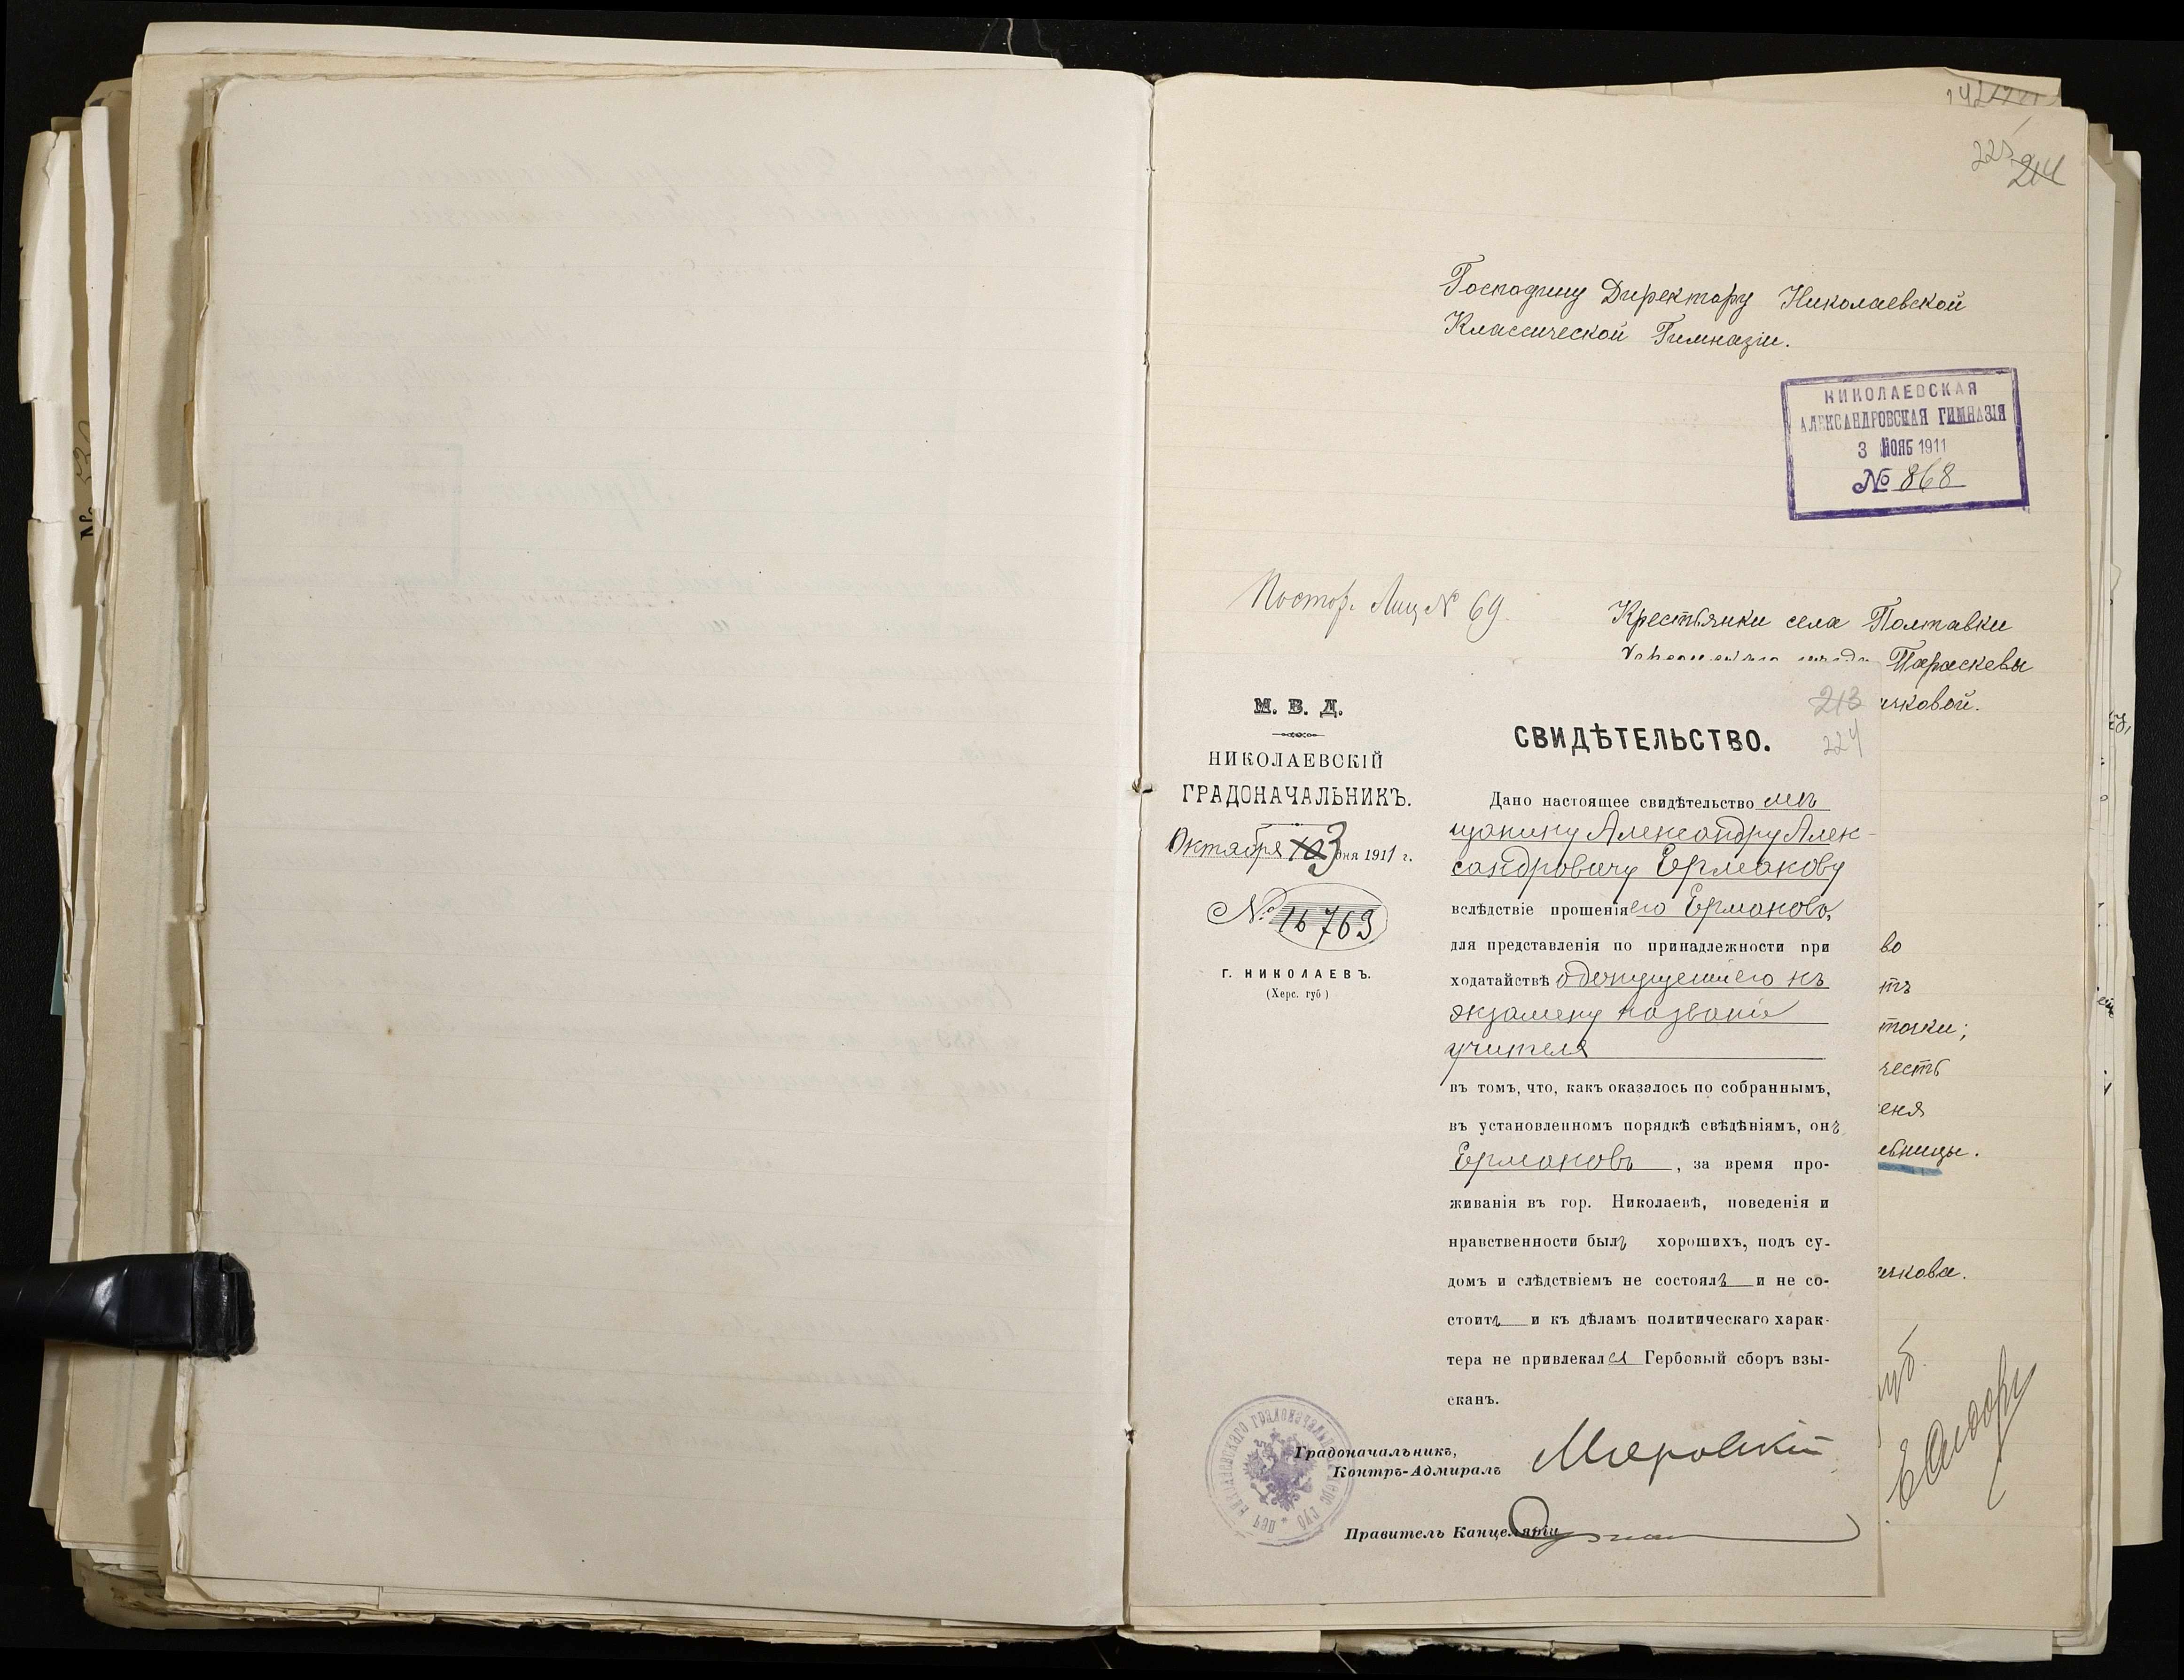 225 214
Господину Директору Николаевской
Классической Гимназіи.
НИКОЛАЕВСКАЯ
АЛЕКСАНДРОВСКАЯ ГИМНАЗІЯ
3 НОЯБ 1911
№ 868
Постор. Лиц № 69
Крестьянки села Полтавки
Параскевы
чковой.
213
224
М. В. Д.
НИКОЛАЕВСКІЙ
ГРАДОНАЧАЛЬНИКЪ.
Октября 3 дня 1911 г.
№ 16763
Г. НИКОЛАЕВЪ.
(Херс. губ)
СВИДѢТЕЛЬСТВО.
Дано настоящее свидѣтельство мѣ
щанину Александру Алек-
сандровичу Ермакову
вслѣдствіе прошенія его Ермакова,
для представленія по принадлежности при
ходатайствѣ о допущеніи его къ
экзамену на званіе
учителя
въ томъ, что, какъ оказалось по собраннымъ,
въ установленномъ порядкѣ свѣдѣніямъ, онъ
Ермаковъ, за время про-
живанія въ гор. Николаевѣ, поведенія и
нравственности былъ хорошихъ, подъ су-
домъ и слѣдствіемъ не состоялъ и не со-
стоитъ и къ дѣламъ политическаго харак-
тера не привлекался Гербовый сборъ взы-
сканъ.
Градоначальникъ,
Контръ-Адмиралъ
Правитель Канцеляріи
во
тъ
точки;
честь
еня
ьницы.
чкова.